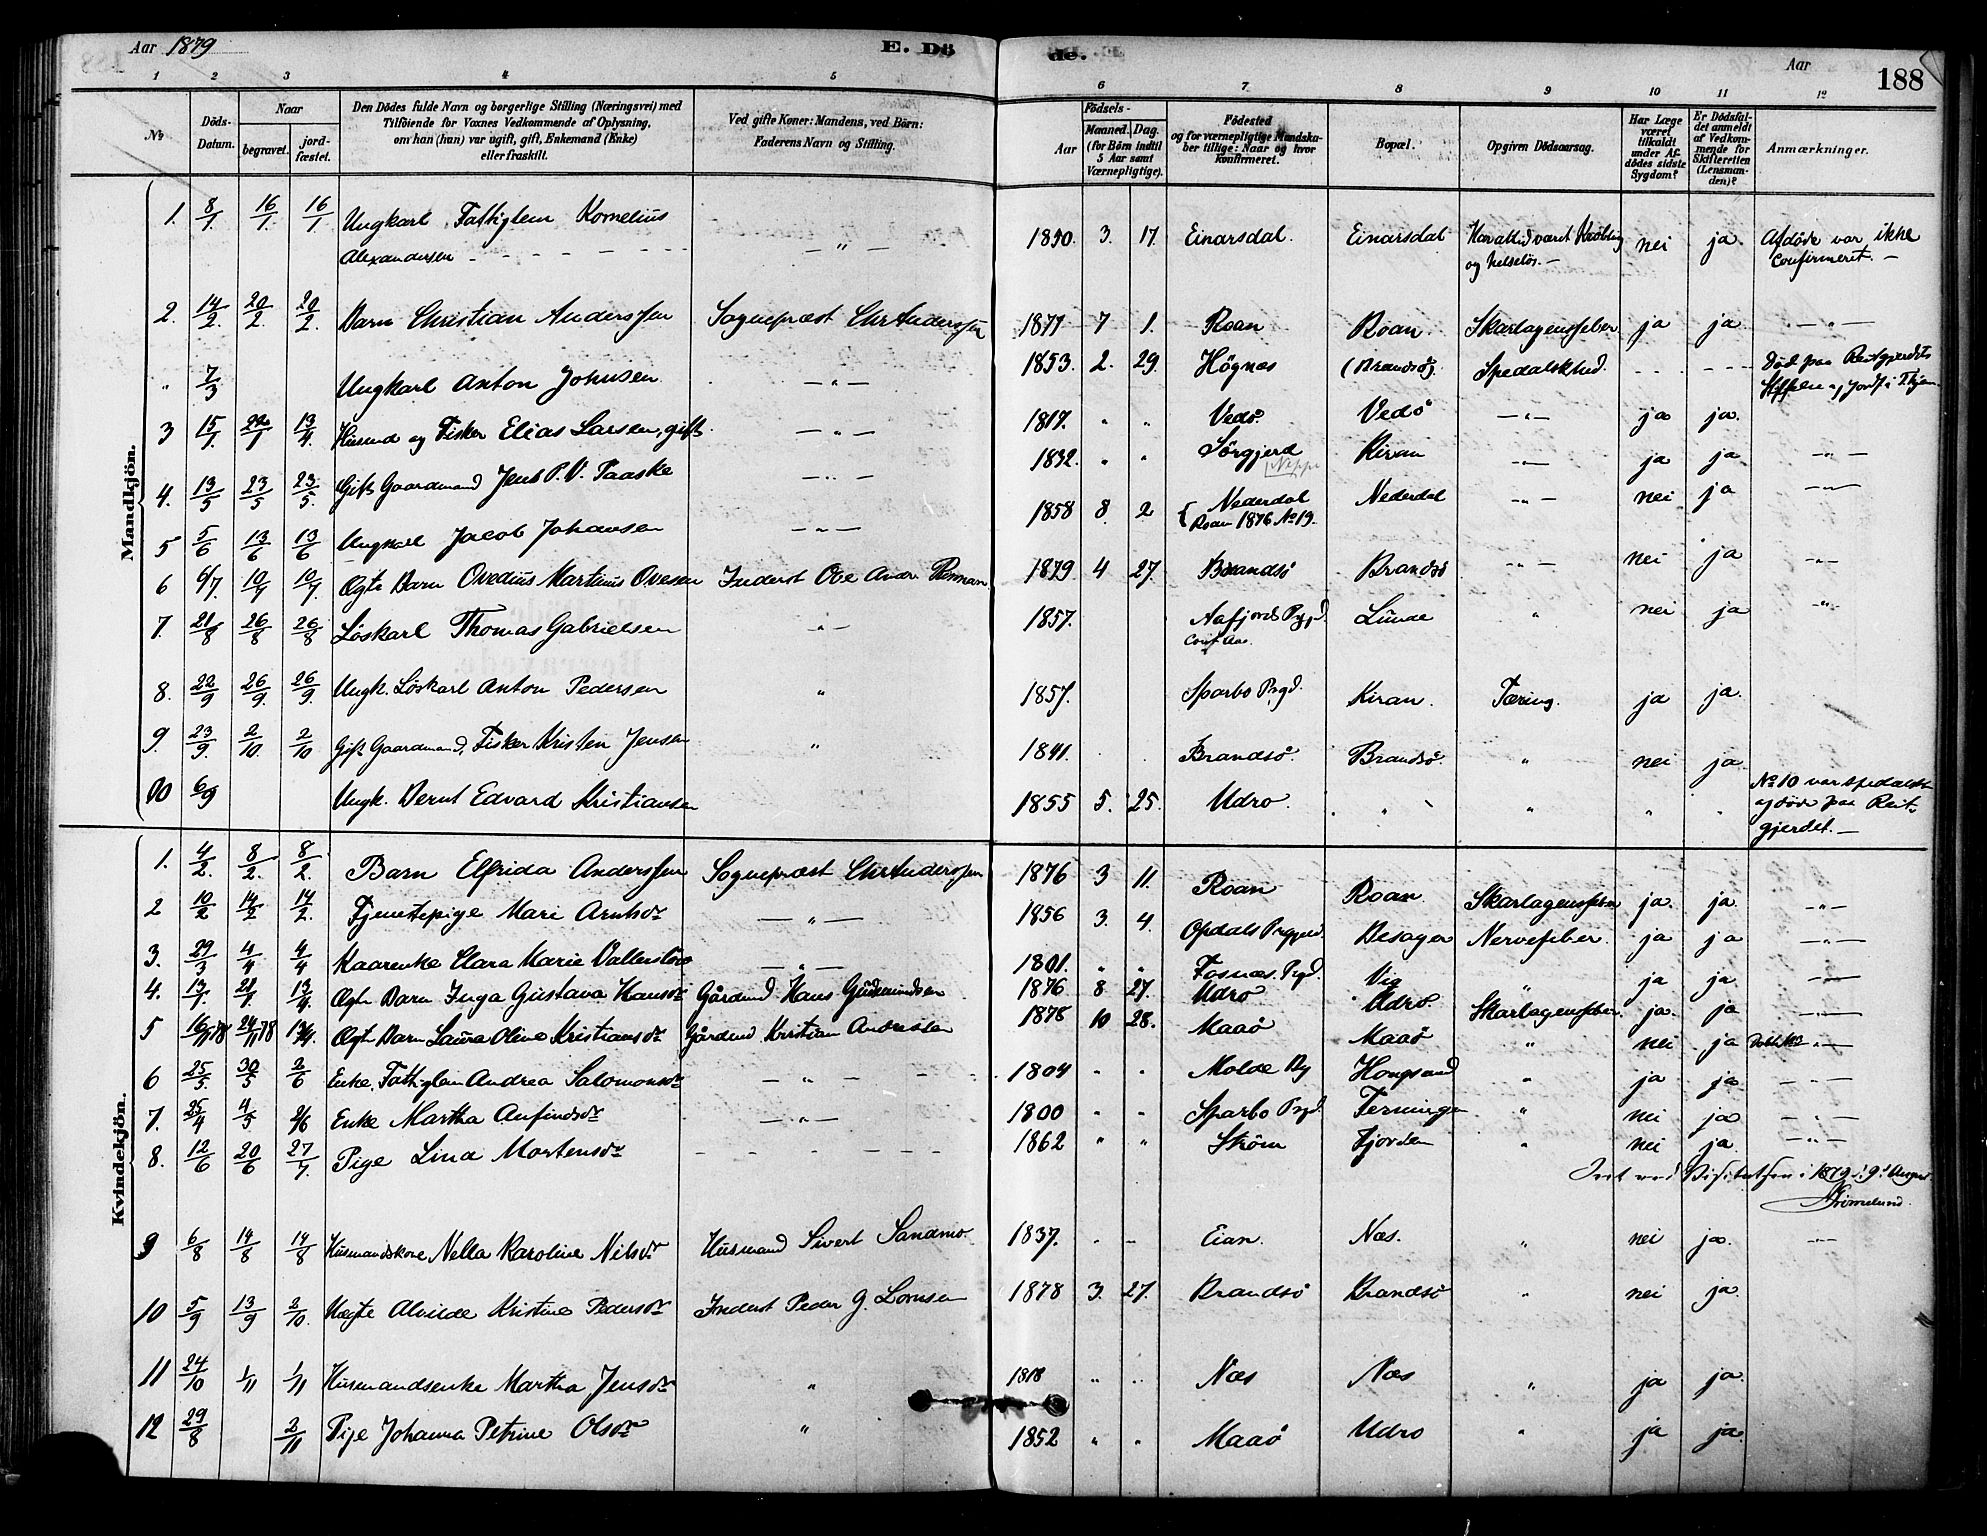 Aar 1879
E. Dö
de.
Aar
188
1 2 3 4 5 6 7 8 9 10 11 12
No
Döds-Datum.
Naar
begravet.
jord-fæstet.
Den Dödes fulde Navn og borgerlige Stilling (Næringsvei) med
Tilföiende for Voxnes Vedkommende af Oplysning,
om han (hun) var ugift, gift, Enkemand (Enke)
eller fraskilt.
Ved gifte Koner: Mandens, ved Börn:
Faderens Navn og Stilling.
Födsels-
Aar
Maaned.
Dag.
(for Börn indtil
5 Aar samt
Værnepligtige).
Födested
og for værnepligtige Mandska-
ber tillige: Naar og hvor
Konfirmeret.
Bopæl.
Opgiven Dödsaarsag.
Har Læge
været
tilkaldt
under Af-
dödes sidste
Sygdom?
Er Dödsfal-
det anmeldt
af Vedkom-
mende for
Skifteretten
(Lensman-
den)?
Anmærkninger.
Mandkjön.
1. 8/1 16/1 16/1 Ungkarl, Fattiglem Kornelius
Alexandersen — " — 1850. 3. 17. Einarsdal. Einarsdal nei ja Afdöde var ikke
og helselös. — confirmeret. —
2. 14/2 20/2 20/2 Barn Christian Anderssen Sognepræst Chr Anderssen 1877 7 1. Roan Roan. Skarlagensfeber ja ja — " —
" 7/3 Ungkarl Anton Johnsen — " — 1853. 2. 29. Högnæs (Brandsö). Spedalskhed. Död paa Reitgjerdets
3 15/1 22/1 13/4 Husmd og Fisker Elias Larsen, gift — " — 1817. " " Vedö. Vedö — " — ja ja.
4. 13/5 23/5 23/5. Gift Gaardmand Jens P. V. Paaske — " — 1832. " " Sörgjerd Kiran — " — ja ja — " —
5 5/6 13/6 13/6 Ungkarl Jacob Johansen — " — 1858 8. 2 { Nederdal Nederdal — " — nei ja — " —
Roan 1876 No 19.
6 6/7. 10/7 10/7. Ægte Barn Ovedius Martinus Ovesen Inderst Ove Andr. 1879 4 27. Brandsö Brandsö — " — nei ja — " —
7. 21/8 26/8 26/8 Löskarl Thomas Gabrielsen — " — 1857. Aafjords Prgjd. Lunde " nei ja — " —
8. 22/9 26/9. 26/9. Ungk. Löskarl Anton Pedersen " 1857. Sparbo Prgd. Kiran. Tæring. ja ja.
9. 23/9. 2/10. 2/10 Gift Gaardmand, Fisker Kristen Jensen " 1841. Brandsö. Brandsö. " nei ja
10 6/9 Ungk. Bernt Edvard Kristiansen 1855 5. 25. Udro. " " " " No 10 var spedalsk
og döde paa Reit-
gjerdet. —
Kvindekjön.
1. 4/2. 8/2. 8/2. Barn Elfrida Anderssen Sognepræst Chr Anderssen 1876 3 11. Roan Roan Skarlagensfeber ja. ja. — " —
2 10/2 14/2 14/2. Tjenestepige Mari Arntsdr — " — 1856 3. 4. Opdals Prgjeld. Besager Nervefeber. ja ja — " —
3. 29/3 4/4 4/4 Kaarenke Clara Marie — " — 1801. " " Fosnæs. Prgd. Vig " ja ja. — " —
4. 13/1. 21/1. 13/4 Ægte Barn Inga Gustava Hansdr Gårdmd Hans Gudmundsen 1876 8 27. Udro Udro. Skarlagensfeber ja. ja — " —
5 16/11 78 24/11 78 13/4. Ægte Barn Laura Oline Kristiansdr Gårdmd Kristian Andersen 1878 10 28. Maaö Maaö " nei ja — " —
6 25/5. 30/5 2/6 Enke, Fattiglem Andrea Salomonsdr — " — 1804 " " Molde By Hongsand " ja ja. — " —
7. 25/4 4/5 2/6 Enke Martha Anfindsdr — " — 1800 " " Sparbo Prgd. Terningen " nei ja. — " —
8. 12/6 20/6 27/7. Pige Lina Mortensdr 1862 " " Sköm Fjorden " nei ja. — " —
9 6/8 14/8 14/8 Husmandskone Nella Karoline Nilsdr Husmand Sivert Sandmo 1837. " " Eian. Næs. " nei ja. — " —
10 5/9 13/9 2/10. Uægte Alvilde Kristine Pedersdr Inderst Peder G. Lornsen 1878 3. 27. Brandsö Brandsö " nei ja.
11 24/10 1/11 1/11 Husmandsenke Martha Jensdr " 1818 " " Næs Næs " ja ja.
12 29/8 2/11 Pige Johanna Petrine Olsdr " 1852 " " Maaö Udro " ja ja.